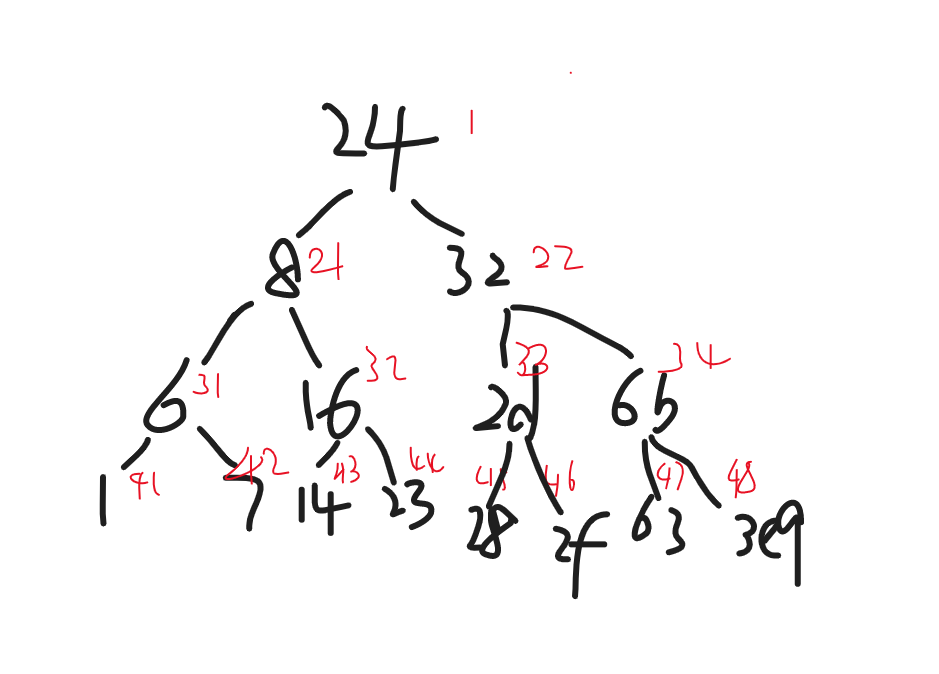 24 1
8 21 32 22
6 31 16 32 2d 33 6b 34
1 41 7 42 14 43 23 44 28 45 2f 46 63 47 3e9 48